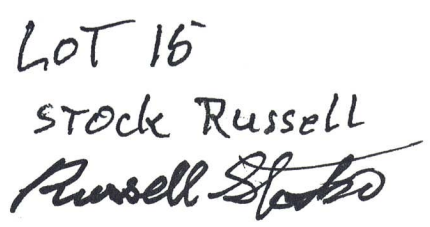 LOT 15
STOCK Russell
Russell